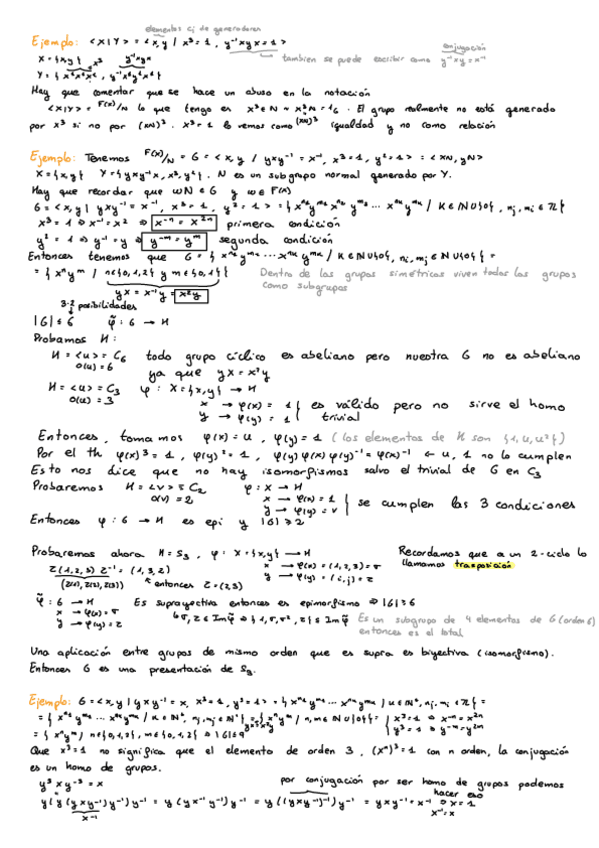 elementos cj de generadores
Ejemplo: <X|Y> = <x,y / x³=1, y⁻¹xyx=1>
conjugación
X={x,y} x³ y⁻¹xyx
también se puede escribir como y⁻¹xy=x⁻¹
Hay que comentar que se hace un abuso en la notación
<X|Y> = F(X)/N lo que tengo es x³∈N ~ x³N = 1G. El grupo realmente no está generado
por x³ si no por (xN)³. x³=1 lo vemos como (xN)³ igualdad y no como relación
Ejemplo: Tenemos F(X)/N = G = <x,y / yxy⁻¹=x⁻¹, x³=1, y²=1> = <xN, yN>
X={x,y} Y={yxy⁻¹x, x³, y²}. N es un subgrupo normal generado por Y.
Hay que recordar que wN∈G y w∈F(X)
G = <x,y / yxy⁻¹=x⁻¹, x³=1, y²=1> = {xⁿ¹yᵐ¹xⁿ²yᵐ² ... xⁿᵏyᵐᵏ / k∈N∪{0}, nj, mi∈Z}
x³=1 ⇒ x⁻¹=x² ⇒ x⁻ⁿ=x²ⁿ primera condición
y²=1 ⇒ y⁻¹=y ⇒ y⁻ᵐ=yᵐ segunda condición
Entonces tenemos que G = {xⁿ¹yᵐ¹ ... xⁿᵏyᵐᵏ / k∈N∪{0}, ni, mj∈N∪{0}} =
= {xⁿyᵐ / n∈{0,1,2} y m∈{0,1}} Dentro de los grupos simétricos viven todos los grupos
como subgrupos
yx = x⁻¹y = x²y
3·2 posibilidades
|G|≤6 φ̃: G → H
Probamos H:
H=<u>=C₆ todo grupo cíclico es abeliano pero nuestra G no es abeliano
O(u)=6 ya que yx=x²y
H=<u>=C₃ φ: X={x,y} → H
O(u)=3 x → φ(x)=1 } es válido pero no sirve el homo
y → φ(y)=1 } trivial
Entonces, tomamos φ(x)=u, φ(y)=1 (los elementos de H son {1,u,u²})
Por el th φ(x)³=1, φ(y)²=1, φ(y)φ(x)φ(y)⁻¹=φ(x)⁻¹ ← u, 1 no lo cumplen
Esto nos dice que no hay isomorfismos salvo el trivial de G en C₃
Probaremos H=<v>=C₂ φ: X → H
O(v)=2 x → φ(x)=1 } se cumplen las 3 condiciones
y → φ(y)=v
Entonces φ: G → H es epi y |G|≥2
Probaremos ahora H=S₃, φ: X={x,y} → H Recordamos que a un 2-ciclo lo
llamamos trasposición
τ(1,2,3)τ⁻¹=(1,3,2) x → φ(x)=(1,2,3)=σ
(τ(1),τ(2),τ(3)) entonces τ=(2,3) y → φ(y)=(i,j)=τ
φ̃: G → H Es suprayectiva entonces es epimorfismo ⇒ |G|≥6
x → φ(x)=σ σ,τ∈Imφ̃ ⇒ {1,σ,σ²,τ}≤Imφ̃ Es un subgrupo de 4 elementos de G (orden 6)
y → φ(y)=τ entonces es el total
Una aplicación entre grupos de mismo orden que es supra es biyectiva (isomorfismo).
Entonces G es una presentación de S₃.
Ejemplo: G = <x,y / yxy⁻¹=x, x³=1, y³=1> = {xⁿ¹yᵐ¹ ... xⁿᵏyᵐᵏ / k∈N*, nj, mi∈Z} =
= {xⁿyᵐ / n∈{0,1,2}, m∈{0,1,2}} ⇒ |G|≤9
x³=1 ⇒ x⁻ⁿ=x²ⁿ
y³=1 ⇒ y⁻ᵐ=y²ᵐ
Que x³=1 no significa que el elemento de orden 3, (xⁿ)³=1 con n orden, la conjugación
es un homo de grupos.
y³xy⁻³=x por conjugación por ser homo de grupos podemos
hacer eso
y(y(yxy⁻¹)y⁻¹)y⁻¹ = y(yx⁻¹y⁻¹)y⁻¹ = y((yxy⁻¹)⁻¹)y⁻¹ = yxy⁻¹=x⁻¹ ⇒ x=1
x⁻¹ x⁻¹=x